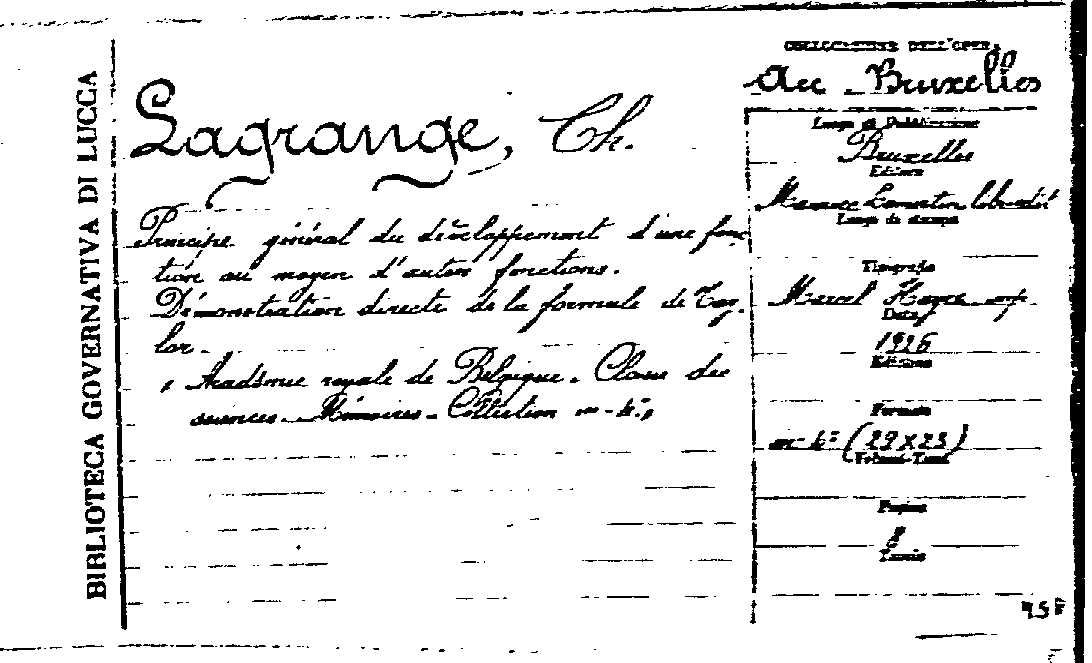 BIBLIOTECA GOVERNATIVA DI LUCCA
COLLOCAZIONE DELL'OPERA
Acc Bruxelles
Lagrange, Ch.
Principe général du développement d'une fonc-
tion au moyen d'autres fonctions.
Démonstration directe de la formule de Tay-
lor.
"Académie royale de Belgique. Classe des
sciences. Mémoires - Collection in-4°"
Luogo di Pubblicazione
Bruxelles
Editore
Lamertin
Luogo di stampa
Tipografo
Marcel Hayez imp.
Data
1926
Edizione
Formato
in-4° (29X23)
Volumi-Tomi
Pagine
8
Tavole
"15"